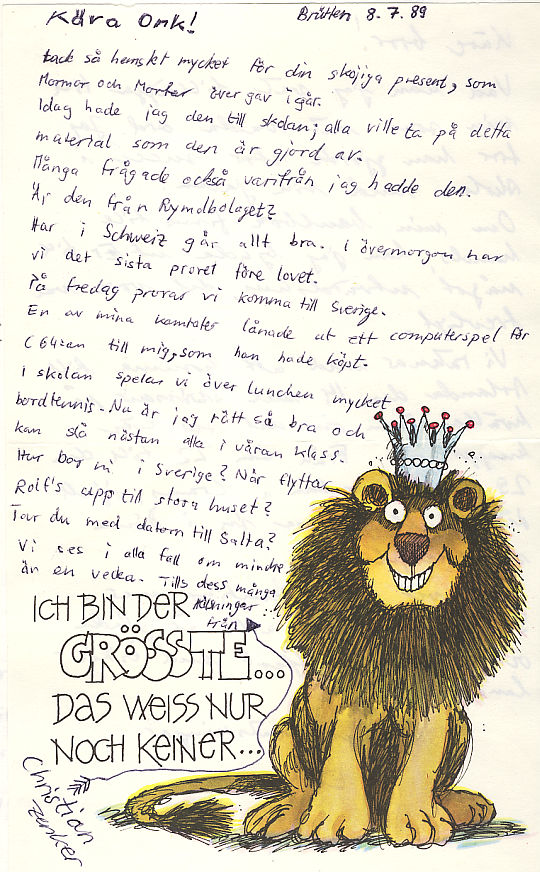 Kära Onk!
Brütten 8.7.89
tack så hemskt mycket för din skojiga present, som
Mormor och Morfar över gav igår.
Idag hade jag den till skolan; alla ville ta på detta
material som den är gjord av.
Många frågade också varifrån jag hadde den.
Är den från Rymdbolaget?
Har i Schweiz går allt bra. i övermorgon har
vi det sista provet före lovet.
På fredag provar vi komma till Sverige.
En av mina kamtater lånade ut ett computerspel för
C64:an till mig, som han hade köpt.
i skolan spelar vi över lunchen mycket
bordtennis. Nu är jag rätt så bra och
kan slå nästan alla i våran klass.
Hur bor ni i Sverige? När flyttar
Rolf's upp till stora huset?
Tar du med datorn till Salta?
Vi ses i alla fall om mindre
än en vecka. Tills dess många
hälsningar
från
ICH BIN DER
GRÖSSTE...
DAS WEISS NUR
NOCH KEINER...
Christian